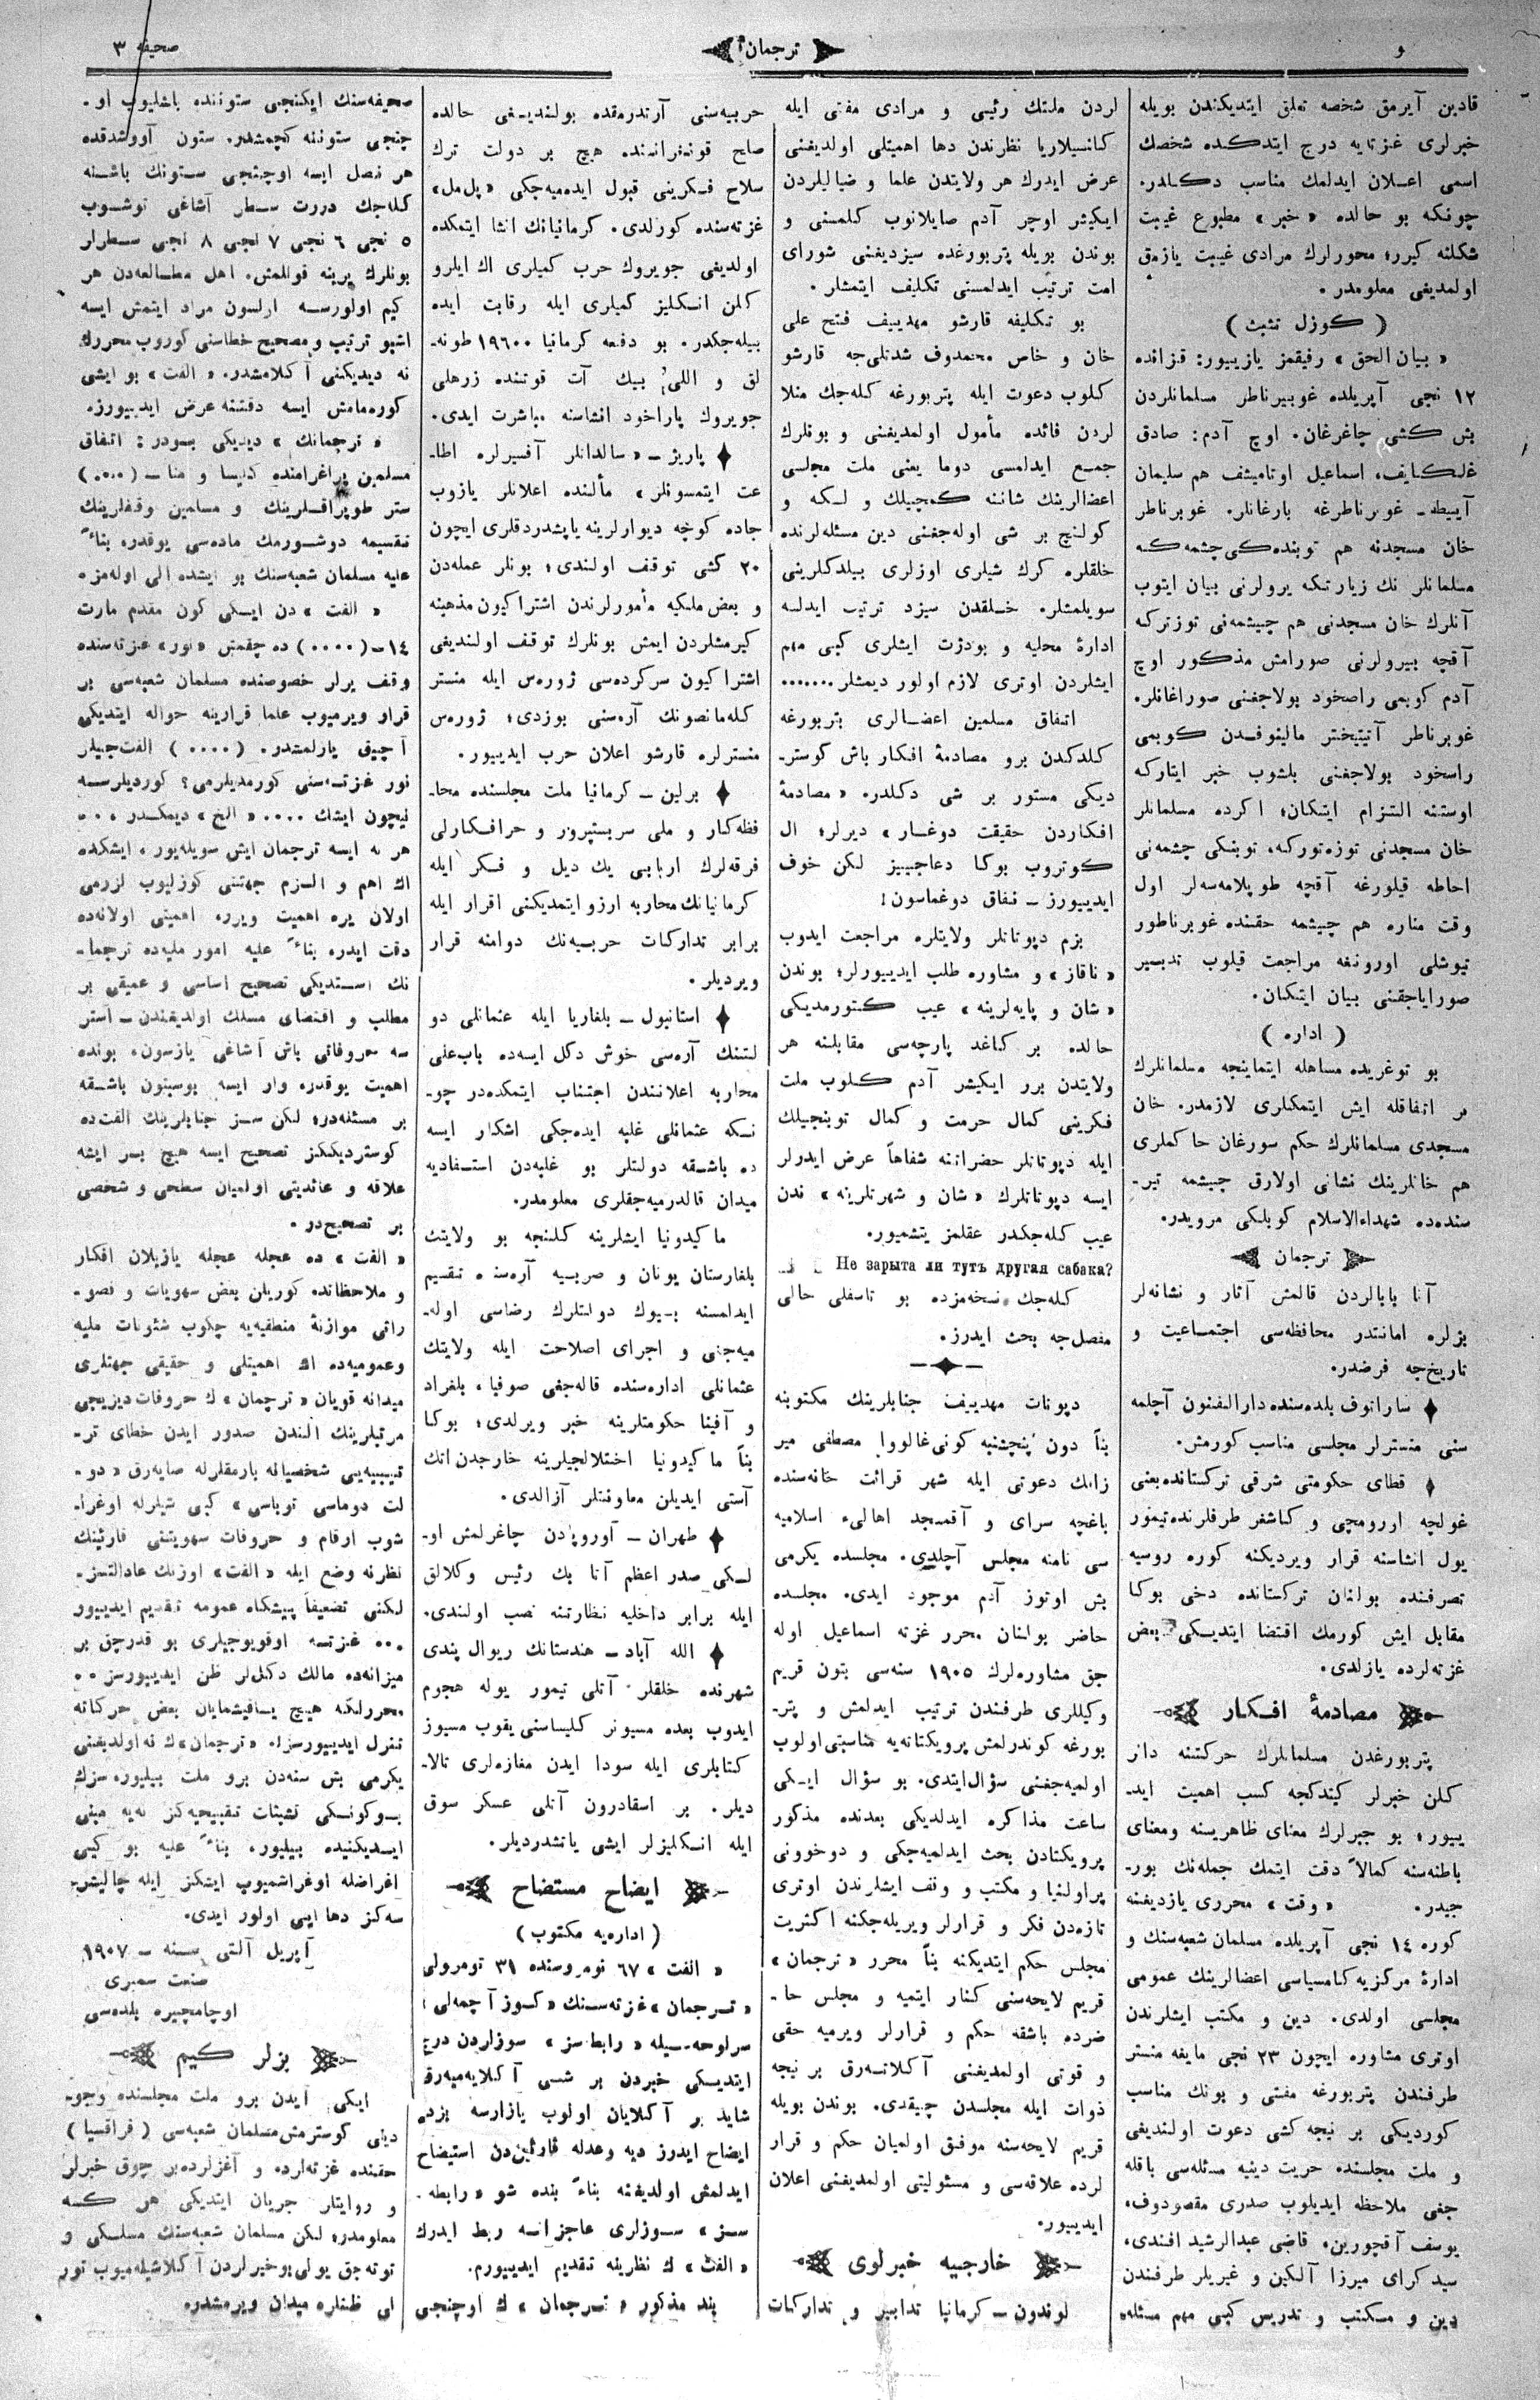 صحیفه ۳
ترجمان
قادین آیرمق شخصه تعلق ایتدیكندن بویله
خبرلری غزتایه درج ایتدكده شخصك
اسمی اعلان ایدلمك مناسب دكلدر.
چونكه بو حالده «خبر» مطبوع غیبت
شكلنه كیرر؛ محورلرك مرادی غیبت یازمق
اولمدیغی معلومدر.
(كوزل تشبث)
«بیان الحق» رفیقمز یازییور: قزانده
١٢ نجی آپریلده غوبیرناطر مسلمانلردن
بش كشی چاغرغان. اوچ آدم: صادق
غلكایف، اسماعیل اوتامیشف هم سلیمان
آییطف غوبرناطرغه بارغانلر. غوبرناطر
خان مسجدنه هم توبنده كی چشمه كه
مسلمانلر نك زیارتكه یرولرنی بیان ایتوب
آنلرك خان مسجدنی هم چیشمه نی توزتركه
آقچه بیرولرنی صورامش مذكور اوچ
آدم كوبمی راصخود بولاجغنی صوراغانلر.
غوبرناطر آتیتیختر مالینوفدن كوبمی
راسخود بولاجغنی بلشوب خبر ایتاركه
اوستنه التزام ایتكان؛ اكرده مسلمانلر
خان مسجدنی توزه توركه، توبنكی چشمه نی
احاطه قیلورغه آقچه طوپلامه سه لر اول
وقت مناره هم چیشمه حقنده غوبرناطور
تیوشلی اورونغه مراجعت قیلوب تدبیر
صورایاجقنی بیان ایتكان.
(اداره)
بو توغریده مساهله ایتماینچه مسلمانلرك
بر اتفاقله ایش ایتمكلری لازمدر. خان
مسجدی مسلمانلرك حكم سورغان حاكملری
هم خانلرینك نشانی اولارق چیشمه تیر-
سنده ده شهداءالاسلام كوبلكی مرویدر.
ترجمان
آنا بابالردن قالمش آثار و نشانه لر
بزلره امانتدر محافظه سی اجتماعیت و
تاریخ چه فرضدر.
سارانوف بلده سنده دارالفنون آچلمه
سنی منسترلر مجلسی مناسب كورمش.
قطای حكومتی شرقی تركستانده یعنی
غولجه ارومچی و كاشغر طرفلرنده تیمور
یول انشاسنه قرار ویردیكنه كوره روسیه
تصرفنده بولنان تركستانده دخی بوكا
مقابل ایش كورمك اقتضا ایتدیكی بعض
غزته لرده یازلدی.
مصادمۀ افكار
پتربورغدن مسلمانلرك حركتنه دائر
كلن خبرلر كیتدكجه كسب اهمیت اید-
ییور؛ بو خبرلرك معنای ظاهریسنه ومعنای
باطنه سنه كمالاً دقت ایتمك جمله نك بور-
جیدر. «وقت» محرری یازدیغنه
كوره ١٤ نجی آپریلده مسلمان شعبه سنك و
ادارۀ مركزیه كامسیاسی اعضالرینك عمومی
مجلسی اولدی. دین و مكتب ایشلرندن
اوتری مشاوره ایچون ٢٣ نجی مایغه منستر
طرفندن پتربورغه مفتی و بونك مناسب
كوردیكی بر نیچه كشی دعوت اولندیغی
و ملت مجلسنده حریت دینیه مسئله سی باقله
جغی ملاحظه ایدیلوب صدری مقصودوف،
یوسف آقچورین، قاضی عبدالرشید افندی،
سید كرای میرزا آلكین و غیریلر طرفندن
دین و مكتب و تدریس كبی مهم مسئله
لردن ملتك رئیسی و مرادی مفتی ایله
كانسیلاریا نظرندن دها اهمیتلی اولدیغنی
عرض ایدرك هر ولایتدن علما و ضیالیلردن
ایكیشر اوچر آدم صایلانوب كلمسنی و
بوندن بویله پتربورغده سیزدیغنی شورای
امت ترتیب ایدلمسنی تكلیف ایتمشلر.
بو تكلیفه قارشو مهدییف فتح علی
خان و خاص محمدوف شدتلی جه قارشو
كلوب دعوت ایله پتربورغه كله جك منلا
لردن فائده مأمول اولمدیغنی و بونلرك
جمع ایدلمسی دوما یعنی ملت مجلسی
اعضالرینك شاننه كمچیلك و لكه و
كولنچ بر شی اوله جغنی دین مسئله لرنده
خلقلره كرك شیلری اوزلری بیلدكلرینی
سویلمشلر. خلقدن سیزد ترتیب ایدلسه
ادارۀ محلیه و بودژت ایشلری كبی مهم
ایشلردن اوتری لازم اولور دیمشلر.......
اتفاق مسلمین اعضالری پتربورغه
كلدكدن برو مصادمۀ افكار باش كوستر-
دیكی مستور بر شی دكلدر. «مصادمۀ
افكاردن حقیقت دوغار» دیرلر؛ ال
كوتروب بوكا دعاجییز لكن خوف
ایدییورز - نفاق دوغماسون!
بزم دپوتاتلر ولایتلره مراجعت ایدوب
«ناقاز» و مشاوره طلب ایدییورلر؛ بوندن
«شان و پایه لرینه» عیب كتورمدیكی
حالده بر كاغد پارچه سی مقابلنه هر
ولایتدن برر ایكیشر آدم كلوب ملت
فكرینی كمال حرمت و كمال توبنچیلك
ایله دپوتاتلر حضراتنه شفاهاً عرض ایدرلر
ایسه دپوتاتلرك «شان و شهرتلرینه» ندن
عیب كله جكدر عقلمز یتشمیور.
Не зарыта ли тутъ другая сабака?
كله جك نسخه مزده بو تاسفلی حالی
مفصل جه بحث ایدرز.
دپوتات مهدییف جنابلرینك مكتوبنه
بناً دون پنچشنبه كونی غالووا مصطفی میر
زانك دعوتی ایله شهر قرائت خانه سنده
باغچه سرای و آقمسجد اهالیء اسلامیه
سی نامنه مجلس آچلدی. مجلسده یكرمی
بش اوتوز آدم موجود ایدی. مجلسده
حاضر بولنان محرر غزته اسماعیل اوله
جق مشاوره لرك ١٩٠٥ سنه سی بتون قریم
وكیللری طرفندن ترتیب ایدلمش و پتر-
بورغه كوندرلمش پرویكتانه یه مناسبتی اولوب
اولمیه جغنی سؤال ایتدی. بو سؤال ایكی
ساعت مذاكره ایدلدیكی بعدنده مذكور
پرویكتادن بحث ایدلمیه جكی و دوخوونی
پراولنیا و مكتب و وقف ایشلرندن اوتری
تازه دن فكر و قرارلر ویریله جكنه اكثریت
مجلس حكم ایتدیكنه بناً محرر «ترجمان»
قریم لایحه سنی كنار ایتمیه و مجلس حا-
ضرده باشقه حكم و قرارلر ویرمیه حقی
و قوتی اولمدیغنی آكلاته رق بر نیچه
ذوات ایله مجلسدن چیقدی. بوندن بویله
قریم لایحه سنه موفق اولمیان حكم و قرار
لرده علاقه سی و مسئولیتی اولمدیغنی اعلان
ایدییور.
خارجیه خبرلری
لوندون - كرمانیا تدابیر و تداركات
حربیه سنی آرتدرمقده بولندیغی حالده
صلح قونفرانسنده هیچ بر دولت ترك
سلاح فكرینی قبول ایده میه جكی «پل مل»
غزته سنده كورلدی. كرمانیانك انشا ایتمكده
اولدیغی جویروك حرب كمیلری اك ایلرو
كلن انكلیز كمیلری ایله رقابت ایده
بیله جكدر. بو دفعه كرمانیا ١٩٦٠٠ طونه-
لق و اللی بیك آت قوتنده زرهلی
جویروك پاراخود انشاسنه مباشرت ایدی.
پاریژ - «سالدانلر آفسیرلره اطا-
عت ایتمسونلر» مألنده اعلانلر یازوب
جاده كوچه دیوارلرینه یاپشدردقلری ایچون
٢٠ كشی توقف اولندی؛ بونلر عمله دن
و بعض ملكیه مأمورلرندن اشتراكیون مذهبنه
كیرمشلردن ایمش بونلرك توقف اولندیغی
اشتراكیون سركرده سی ژوره س ایله منستر
كله مانصونك آره سنی بوزدی؛ ژوره س
منسترلره قارشو اعلان حرب ایدییور.
برلین - كرمانیا ملت مجلسنده محا-
فظه كار و ملی سربستپرور و حرافكارلی
فرقه لرك اربابی یك دیل و فكر ایله
كرمانیانك محاربه ارزو ایتمدیكنی اقرار ایله
برابر تداركات حربیه نك دوامنه قرار
ویردیلر.
استانبول - بلغاریا ایله عثمانلی دو
لتنك آره سی خوش دكل ایسه ده باب علی
محاربه اعلانندن اجتناب ایتمكده در چو-
نكه عثمانلی غلبه ایده جكی اشكار ایسه
ده باشقه دولتلر بو غلبه دن استفادیه
میدان قالدرمیه جقلری معلومدر.
ماكیدونیا ایشلرینه كلنجه بو ولایتك
بلغارستان یونان و صربیه آره سنه تقسیم
ایدلمسنه بیوك دولتلرك رضاسی اوله-
میه جغی و اجرای اصلاحت ایله ولایتك
عثمانلی اداره سنده قاله جغی صوفیا، بلغراد
و آفینا حكومتلرینه خبر ویرلدی؛ بوكا
بناً ماكیدونیا اختلالجیلرینه خارجدن انك
آستی ایدیلن معاونتلر آزالدی.
طهران - آوروپادن چاغرلمش او-
لكی صدر اعظم آتا بك رئیس وكلالق
ایله برابر داخلیه نظارتنه نصب اولندی.
الله آباد - هندستانك ریوال پندی
شهرنده خلقلر آتلی تیمور یوله هجوم
ایدوب بعده مسیونر كلیساسنی یقوب مسیوز
كتابلری ایله سودا ایدن مغازه لری تالا-
دیلر. بر اسقادرون آتلی عسكر سوق
ایله انكلیزلر ایشی یاتشدردیلر.
ایضاح مستضاح
(اداره یه مكتوب)
«الفت» ٦٧ نومروسنده ٣١ نومرولی
«ترجمان» غزته سنك «كوز آچمه لی»
سرلوحه سیله «رابطه سز» سوزلردن درج
ایتدیكی خبردن بر شی آكلایه میه رق
شاید بر آكلایان اولوب یازارسه بزده
ایضاح ایدرز دیه وعدله قارئین دن استیضاح
ایدلمش اولدیغنه بناءً بنده شو «رابطه-
سز» سوزلری عاجزانه ربط ایدرك
«الفت» ك نظرینه تقدیم ایدییورم.
بند مذكور «ترجمان» ك اوچنجی
صحیفه سنك ایكنجی ستوننده باشلیوب او-
چنجی ستوننه كچمشدر. ستون آووشدقده
هر نصل ایسه اوچنجی ستونك باشنه
كله جك دررت سطر آشاغی توشوب
٥ نجی ٦ نجی ٧ نجی ٨ نجی سطرلر
بونلرك یرینه قوللمش. اهل مطالعه دن هر
كیم اولورسه اولسون مراد ایتمش ایسه
اشبو ترتیب و مصحیح خطاسنی كوروب محررك
نه دیدیكنی آكلامشدر. «الفت» بو ایشی
كوره مامش ایسه دقتنه عرض ایدییورز.
«ترجمانك» دیدیكی بودر: اتفاق
مسلمین پراغرامنده كلیسا و منا - (....)
ستر طوپراقلرینك و مسلمین وقفلرینك
تقسیمه دوشورمك ماده سی یوقدر، بناءً
علیه مسلمان شعبه سنك بو ایشده الی اوله مزه
«الفت» دن ایكی كون مقدم مارت
١٤-(....) ده چقمش «نور» غزته سنده
وقف یرلر خصوصنده مسلمان شعبه سی بر
قرار ویرمیوب علما قرارینه حواله ایتدیكی
آچیق یازلمشدر. (....) الفت جیلر
نور غزته سنی كورمدیلرمی؟ كوردیلرسه
نیچون ایشك .... «الخ» دیمكدر،..
هر نه ایسه ترجمان ایش سویله یور، ایشكده
اك اهم و الزم جهتنی كوزلیوب لزرمی
اولان یره اهمیت ویرر، اهمیتی اولانه ده
دقت ایدره بناءً علیه امور ملیه ده ترجما-
نك استدیكی تصحیح اساسی و عمیقی بر
مطلب و اقتضای مسلك اولدیغندن - استر
سه حروفاتی باش آشاغی یازسون، بونده
اهمیت یوقدر، وار ایسه بوسبتون باشقه
بر مسئله در؛ لكن سز جنابلرینك الفت ده
كوستردیككز تصحیح ایسه هیچ بر ایشه
علاقه و عائدیتی اولمیان سطحی و شخصی
بر تصحیح در.
«الفت» ده عجله عجله یازیلان افكار
و ملاحظاتده كوریلن بعض سهویات و قصو-
راتی موازنۀ منطقیه یه چكوب شئونات ملیه
وعمومیه ده اك اهمیتلی و حقیقی جهتلری
میدانه قویان «ترجمان» ك حروفات دیزیجی
مرتبلرینك الندن صدور ایدن خطای تر-
تیبیه یی شخصیانه بارمقلرله صایه رق «دو-
لت دوماسی توپاسی» كبی شیلرله اوغرا-
شوب ارقام و حروفات سهویتنی قارئینك
نظرنه وضع ایله «الفت» اوزنك عادالتسز-
لكنی تضعیفاً پیشكاه عمومه تقدیم ایدییور
... غزته اوقویوجیلری بو قدرچق بر
میزانه ده مالك دكللر ظن ایدییورسز..
محررلكه هیچ یاقیشمایان بعض حركاته
تنزل ایدییورسز. «ترجمان» ك نه اولدیغنی
یكرمی بش سنه دن برو ملت بیلیور، سزك
بوكونكی تشبثات تقبیحیه كز نه یه مبنی
ایدیكنیده بیلیور، بناءً علیه بو كبی
اغراضله اوغراشمیوب ایشكز ایله چالیشر-
سه كز دها ایی اولور ایدی.
آپریل آلتی سنه - ١٩٠٧
صنعت سمبری
اوچامچیره بلده سی
بزلر كیم
ایكی آیدن برو ملت مجلسنده وجو-
دینی كوسترمش مسلمان شعبه سی (فراقسیا)
حقنده غزته لرده و آغزلرده بر چوق خبرلر
و روایتلر جریان ایتدیكی هر كسه
معلومدر؛ لكن مسلمان شعبه سنك مسلكی و
توته جق یولی بو خبرلردن آكلاشیله میوب تور
لی ظنلره میدان ویرمشدر.